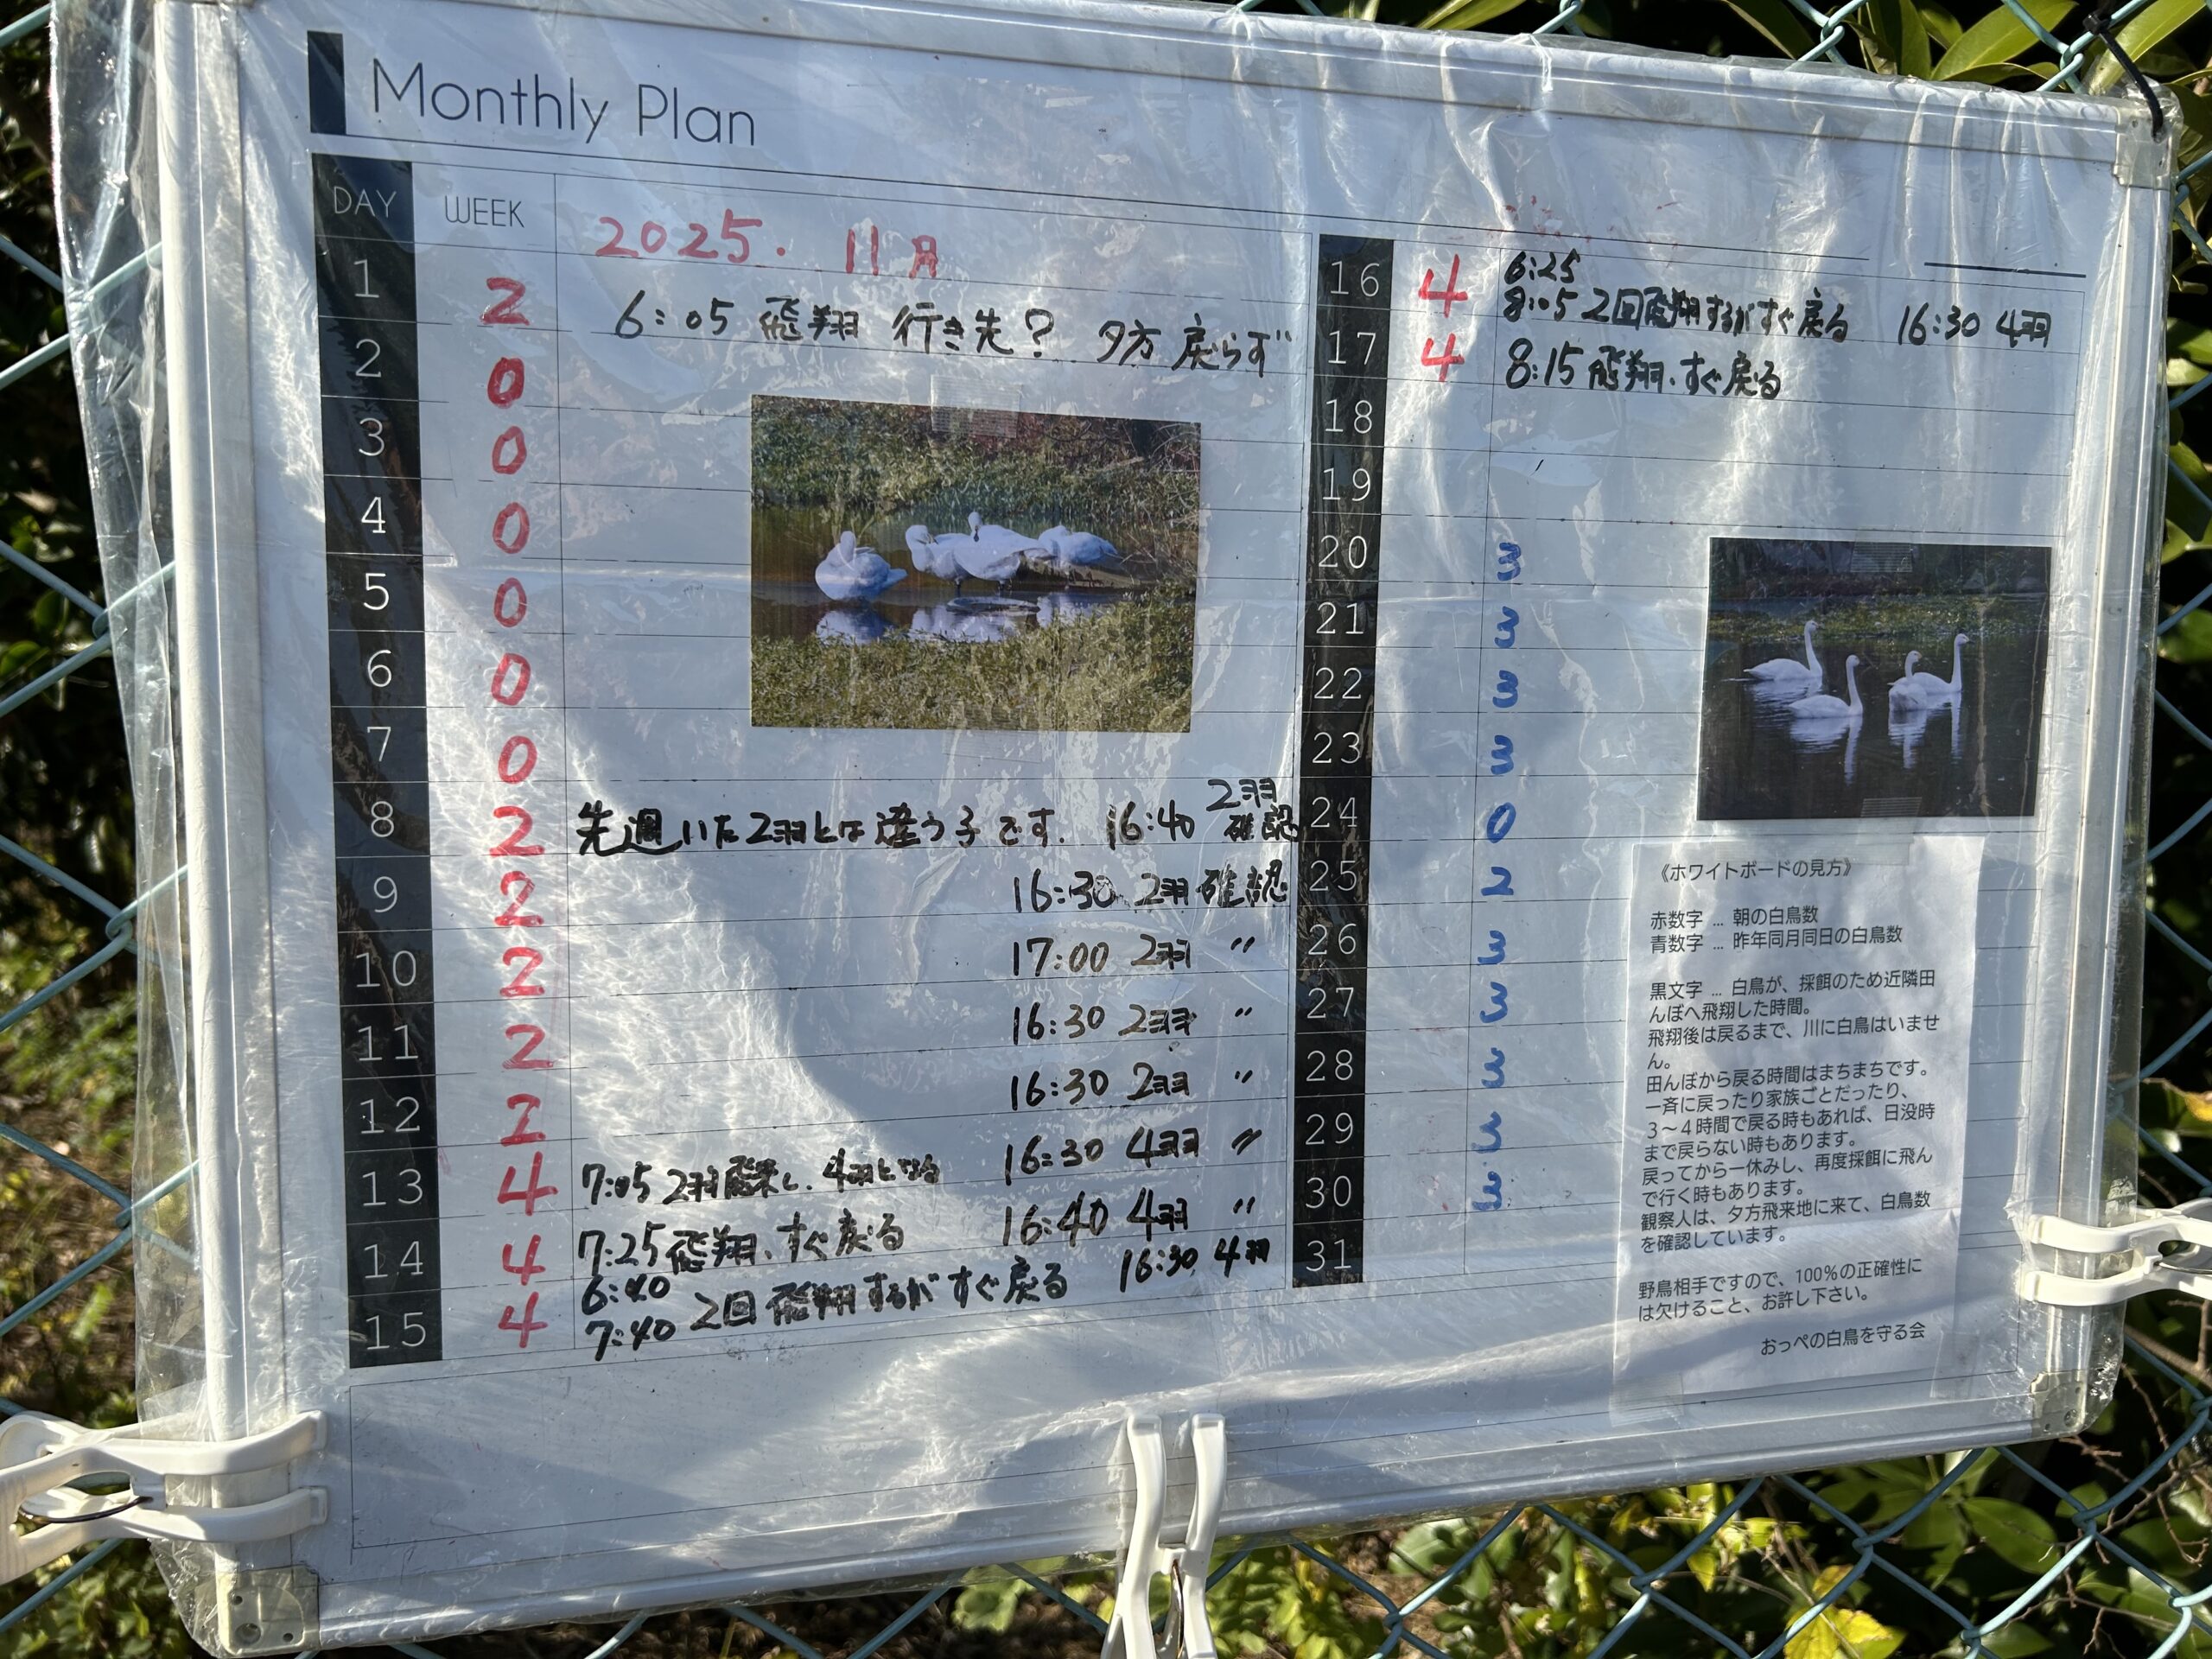 Monthly Plan
DAY WEEK 2025. 11月
1 2 6:05 飛翔 行き先? 夕方 戻らず
2 0
3 0
4 0
5 0
6 0
7 0
8 2 先週いた2羽とは違う子です. 16:40 2羽確認
9 2 16:30 2羽 確認
10 2 17:00 2羽 〃
11 2 16:30 2羽 〃
12 2 16:30 2羽 〃
13 4 7:05 2羽飛来し、4羽となる 16:30 4羽 〃
14 4 7:25 飛翔、すぐ戻る 16:40 4羽 〃
15 4 6:40 7:40 2回飛翔するがすぐ戻る 16:30 4羽
16 4 6:25 8:05 2回飛翔するがすぐ戻る 16:30 4羽
17 4 8:15 飛翔、すぐ戻る
18
19
20 3
21 3
22 3
23 3
24 0
25 2
26 3
27 3
28 3
29 3
30 3
31
《ホワイトボードの見方》
赤数字 … 朝の白鳥数
青数字 … 昨年同月同日の白鳥数
黒文字 … 白鳥が、採餌のため近隣田
んぼへ飛翔した時間。
飛翔後は戻るまで、川に白鳥はいませ
ん。
田んぼから戻る時間はまちまちです。
一斉に戻ったり家族ごとだったり、
3～4時間で戻る時もあれば、日没時
まで戻らない時もあります。
戻ってから一休みし、再度採餌に飛ん
で行く時もあります。
観察人は、夕方飛来地に来て、白鳥数
を確認しています。
野鳥相手ですので、100%の正確性に
は欠けること、お許し下さい。
おっぺの白鳥を守る会